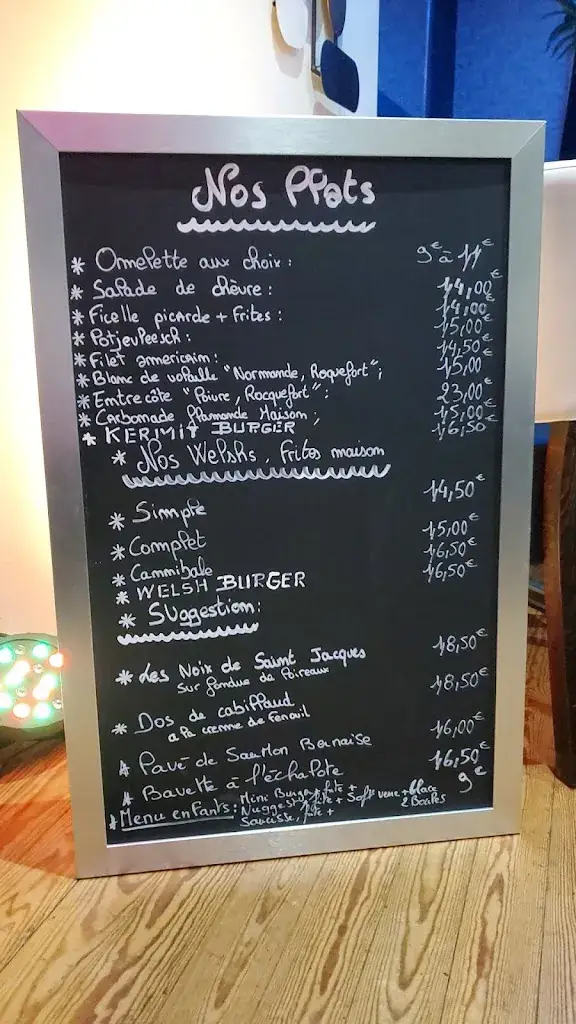 Nos Plats
* Omelette aux choix : 9€ à 11€
* Salade de chèvre : 14,00€
* Ficelle picarde + Frites : 14,00€
* Potjevleesch : 15,00€
* Filet americain : 14,50€
* Blanc de volaille "Normande, Roquefort" ; 15,00€
* Entrecôte "Poivre, Rocquefort" : 23,00€
* Carbonade flamande Maison ; 15,00€
* KERMIT BURGER 16,50€
* Nos Welshs, frites maison
* Simple 14,50€
* Complet 15,00€
* Cannibale 16,50€
* WELSH BURGER 16,50€
* Suggestion :
* Les Noix de Saint Jacques 18,50€
sur fondue de Poireaux
* Dos de cabillaud 18,50€
a la creme de Fenouil
* Pavé de Saumon Bernaise 16,00€
* Bavette à l'échalote 16,50€
* Menu enfants : Mini Burger, frite + 9€
Nuggets, frite + Soft verre + glace
Saucisse, frite + 2 Boules